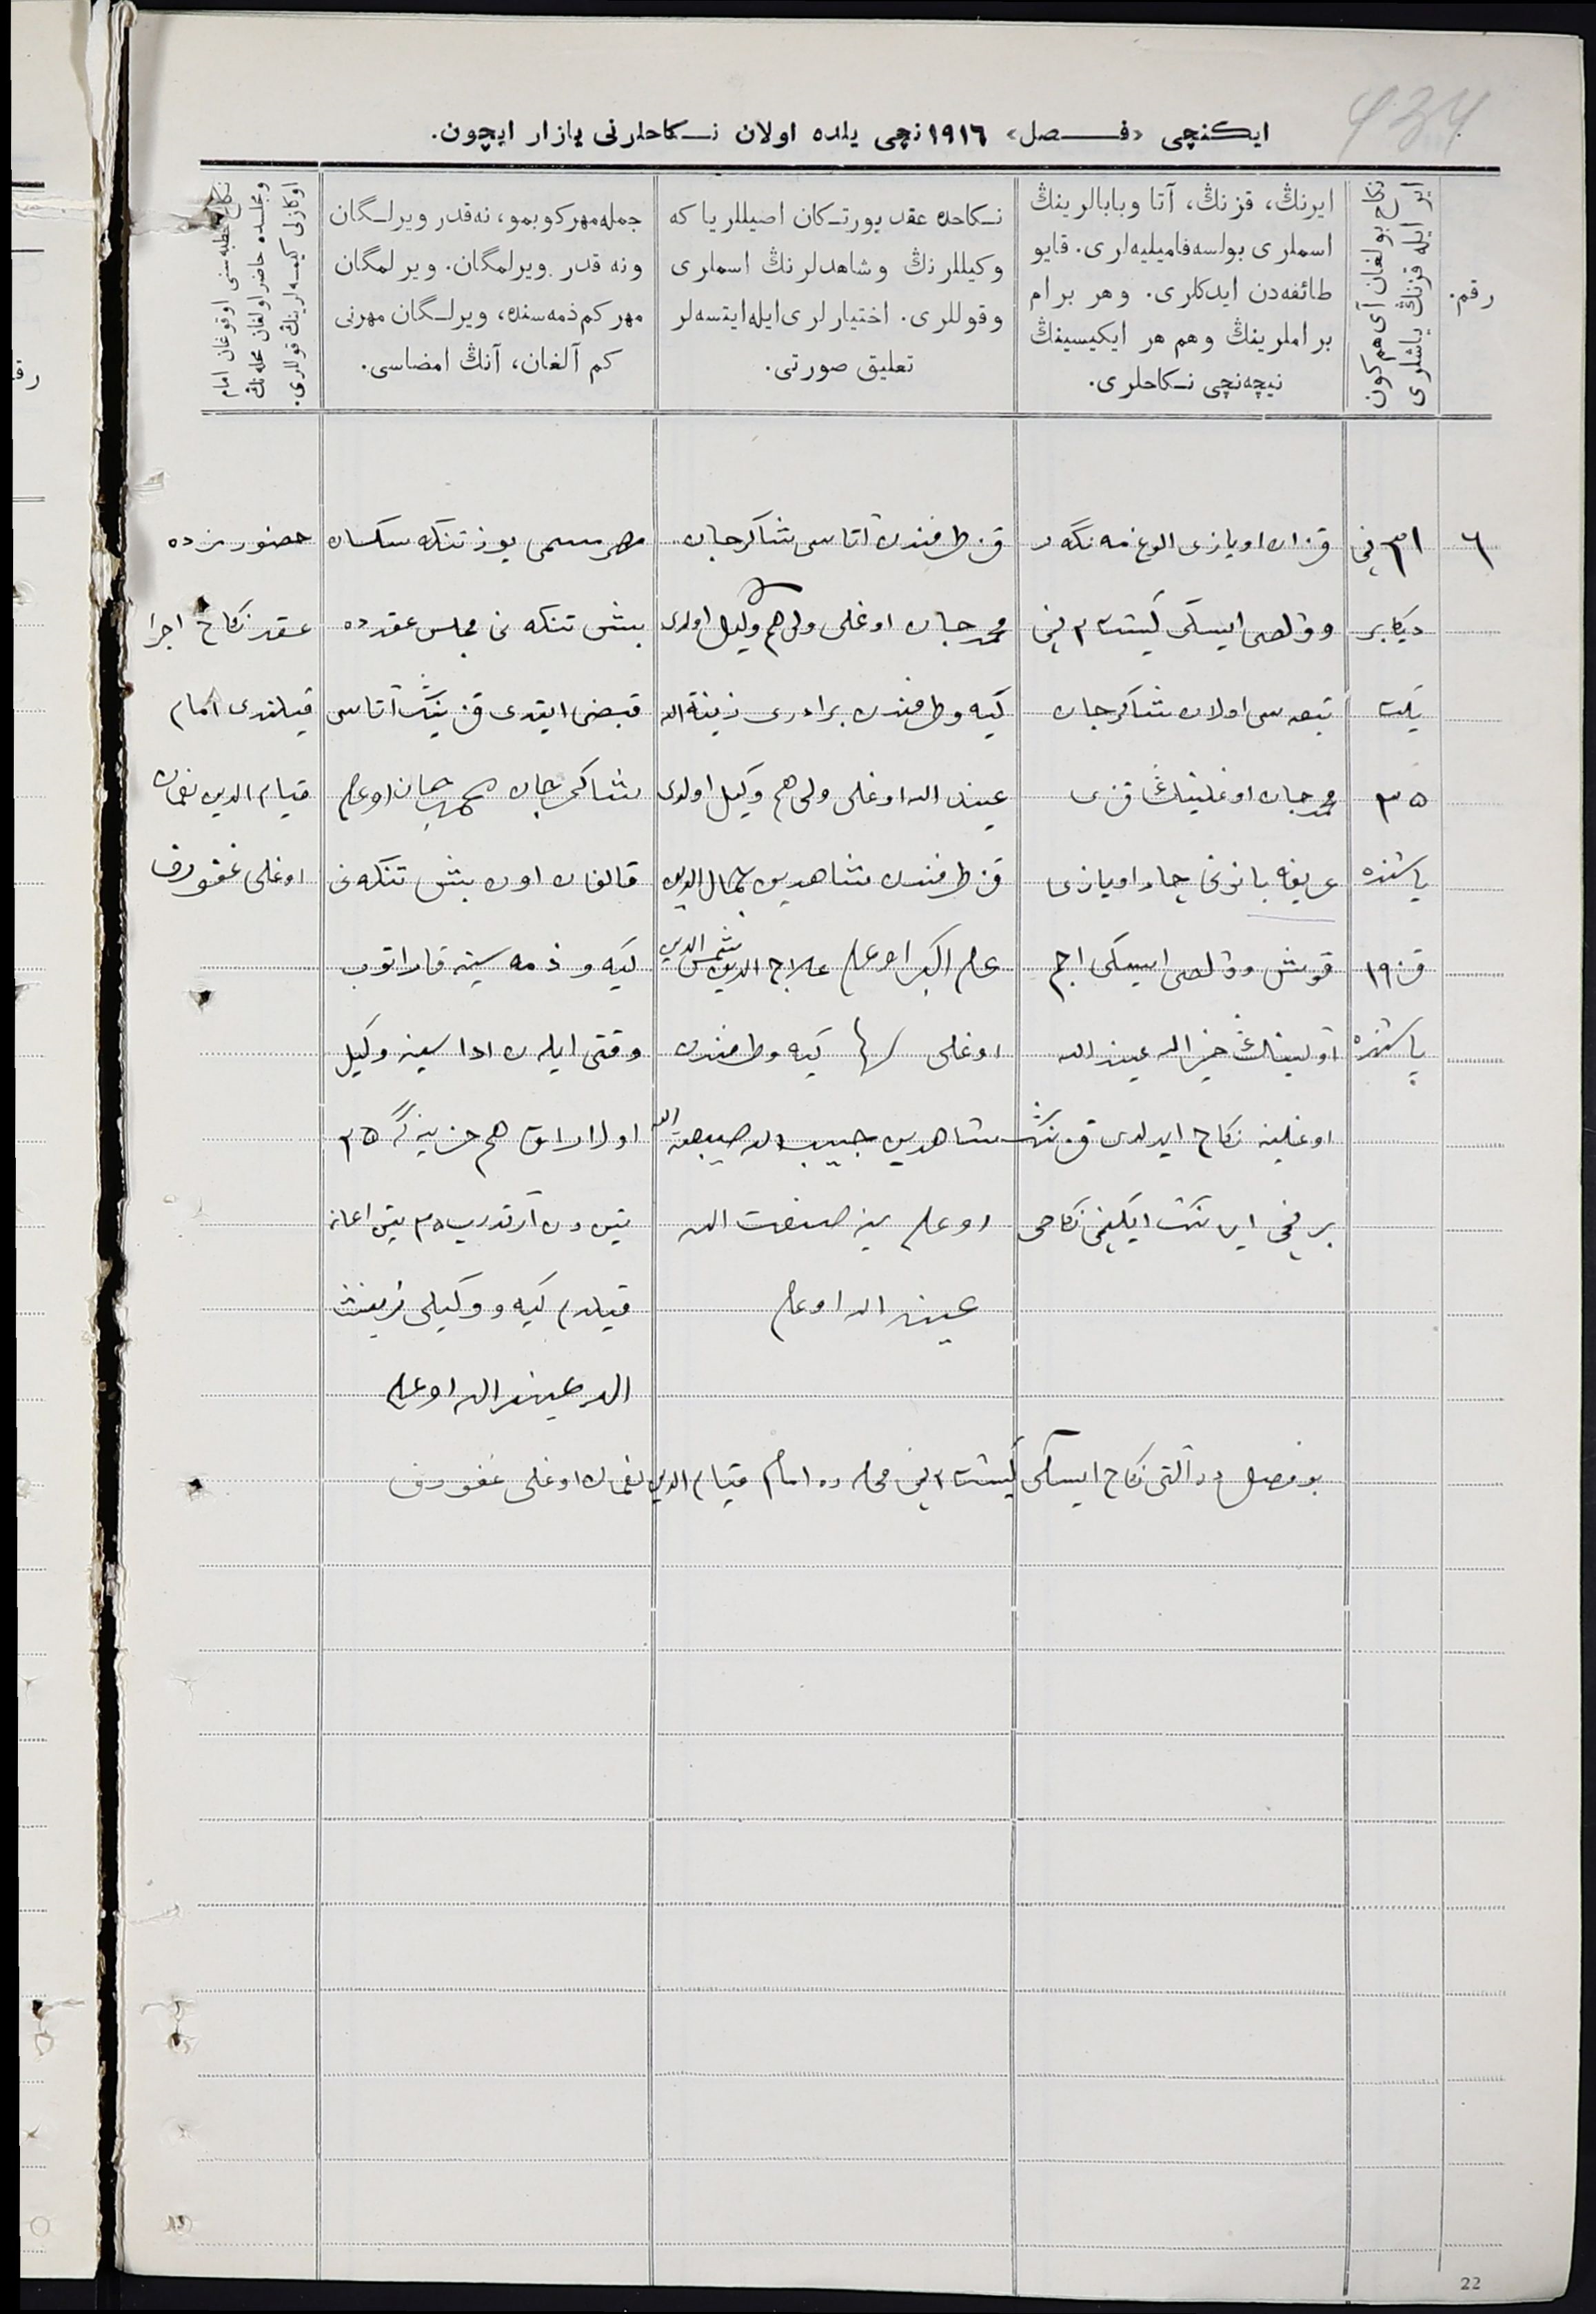 434
ایكنچی «فصل» ۱۹۱٦نچی یلده اولان نكاحلرنی یازار ایچون.
رقم.
نكاح بولغان آی هم كون
ایر ایله قزنڭ یاشلری
ایرنڭ، قزنڭ، آتا وبابالرینڭ
اسملری بولسه فامیلیه‌لری. قایو
طائفه‌دن ایدكلری. وهر برام
براملرینڭ وهم هر ایكیسینڭ
نیچه‌نچی نكاحلری.
نكاحده عقد یورتكان اصیللر یا كه
وكیللرنڭ وشاهدلرنڭ اسملری
وقوللری. اختیارلری ایله ایتسه‌لر
تعلیق صورتی.
جمله مهر كوبمو، نه قدر ویرلگان
ونه قدر ویرلمگان. ویرلمگان
مهر كم ذمه‌سنده، ویرلگان مهرنی
كم آلغان، آنڭ امضاسی.
نكاح خطبه‌سنی اوقوغان امام
ومجلسده حاضر اولغان محله‌نڭ
اوكازلی كیمسه‌لرینڭ قوللری.
٦
۳۱ نچی
دیكابر
یگت
۳۵
یاشنده
قز ۱۹
یاشنده
قزان اویازی الوغ مه‌نگه‌ر
وولصی ایسكی كیشت ۲ نچی
تبعه سی اولان شاكرجان
محمدجان اوغلینڭ قزی
عریفه بانونی چار اویازی
قوش وولصی ایسكی اجم
اولینڭ خیرالله عبیدالله
اوغلینه نكاح ایدلدی قزنڭ
برنچی ایرنڭ ایكنچی نكاحی
قز طرفندن آتاسی شاكرجان
محمدجان اوغلی ولی هم وكیل اولدی
كیه و طرفندن برادری زینة الله
عبیدالله اوغلی ولی هم وكیل اولدی
قز طرفندن شاهدین جمال الدین
علی اكبر اوغلی علاج الدین شمس الدین
اوغلی كیه و طرفندن
شاهدین حبیب الله صبیحة الله
اوغلی ینه صنعت الله
عبیدالله اوغلی
مهر مسمی یوز تنكه سكسان
بش تنكه نی مجلس عقدده
قبض ایتدی قزینڭ آتاسی
شاكرجان محمدجان اوغلی
قالغان اون بش تنكه نی
كیه و ذمه سینه قاراتوب
وقتی ایله ن اداسینه وكیل
اولاراق هم خزینه گه ۲۵
تین دن آرتدریب ۳۵ تین اعانه
قیلدم كیه و وكیلی زینت
الله عبیدالله اوغلی
حضورمزده
عقد نكاح اجرا
قیلندی امام
قیام الدین نعمان
اوغلی غفورف
بو فصل ده آلتی نكاح ایسكی كیشت ۲ نچی محله ده امام قیام الدین نعمان اوغلی غفورف
22